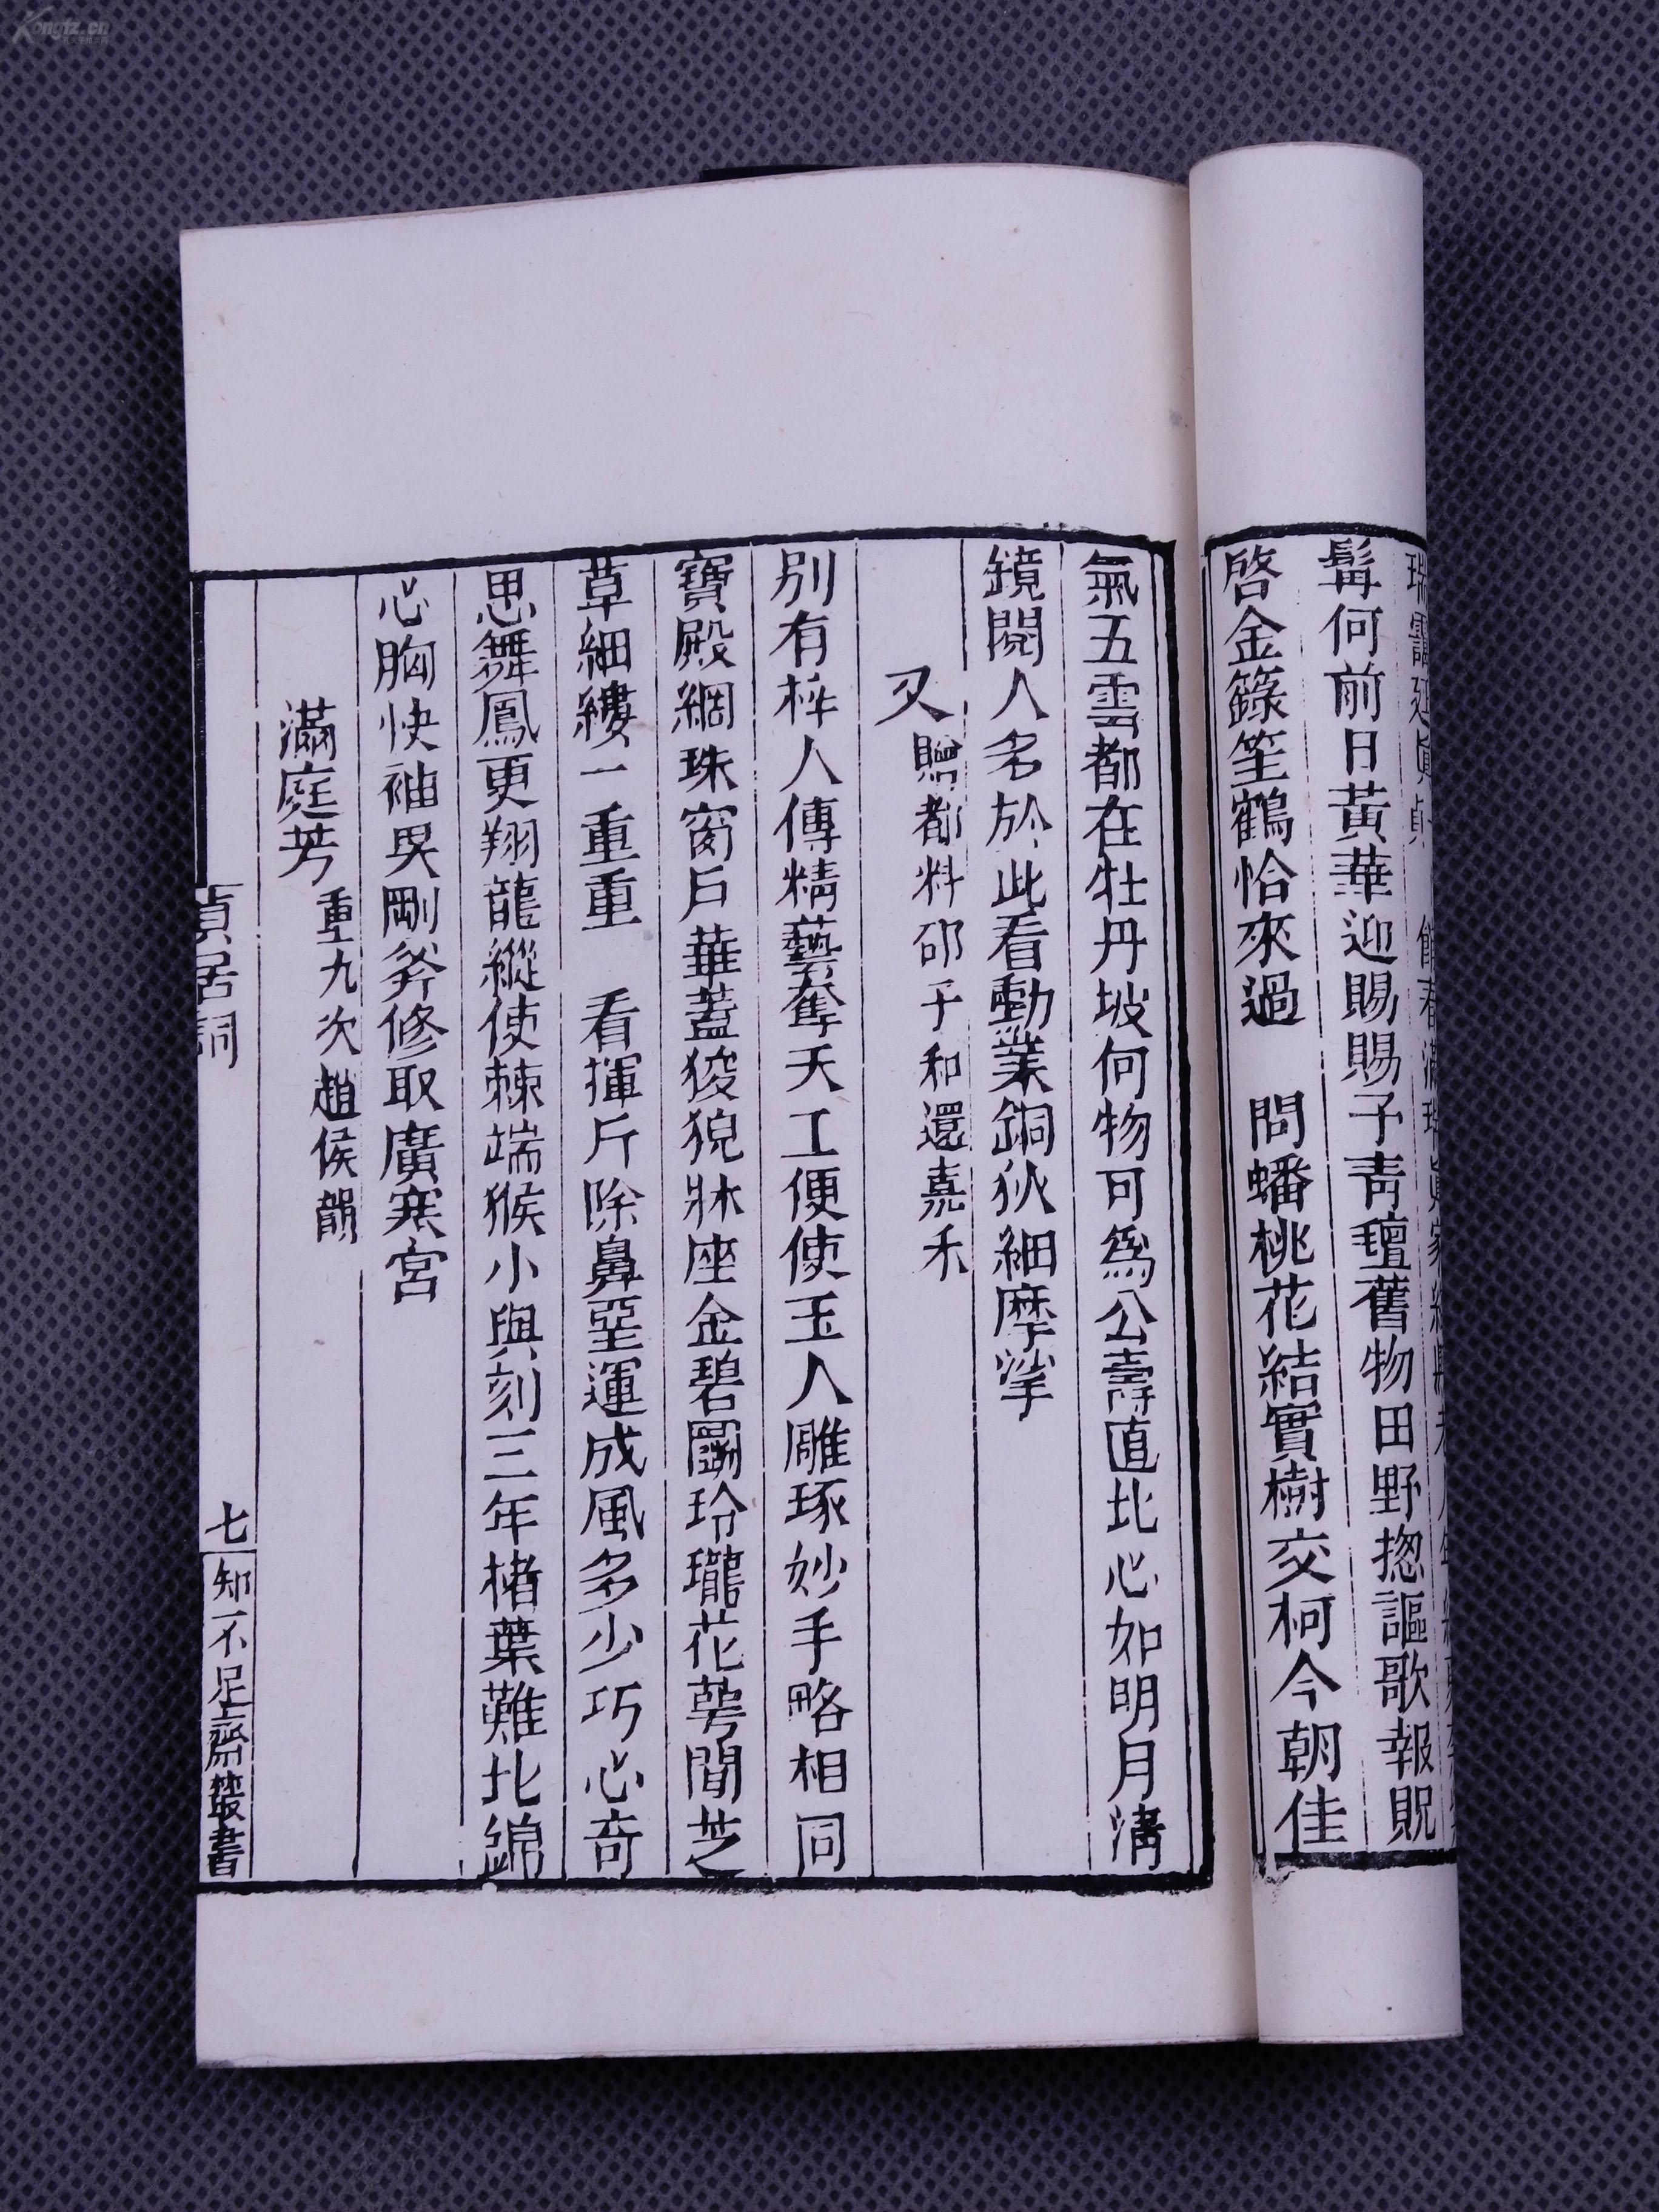 髯何前日黃華迎賜賜予青氊舊物田野揔謳歌報貺
啓金籙笙鶴恰來過　問蟠桃花結實樹交柯今朝佳
氣五雲都在牡丹坡何物可爲公壽直比心如明月淸
鏡閱人多於此看動業銅狄細摩挲
又贈都料邵子和還嘉禾
別有梓人傳精藝奪天工便使玉人雕琢妙手略相同
寶殿網珠窗戶華蓋狻猊牀座金碧罽玲瓏花萼間芝
草細縷一重重　看揮斤除鼻堊運成風多少巧心奇
思舞鳳更翔龍縱使棘端猴小與刻三年楮葉難比錦
心胸快袖吳剛斧修取廣寒宮
滿庭芳重九次趙侯韻
貞居詞
七
知不足齋叢書
Kongfz.cn